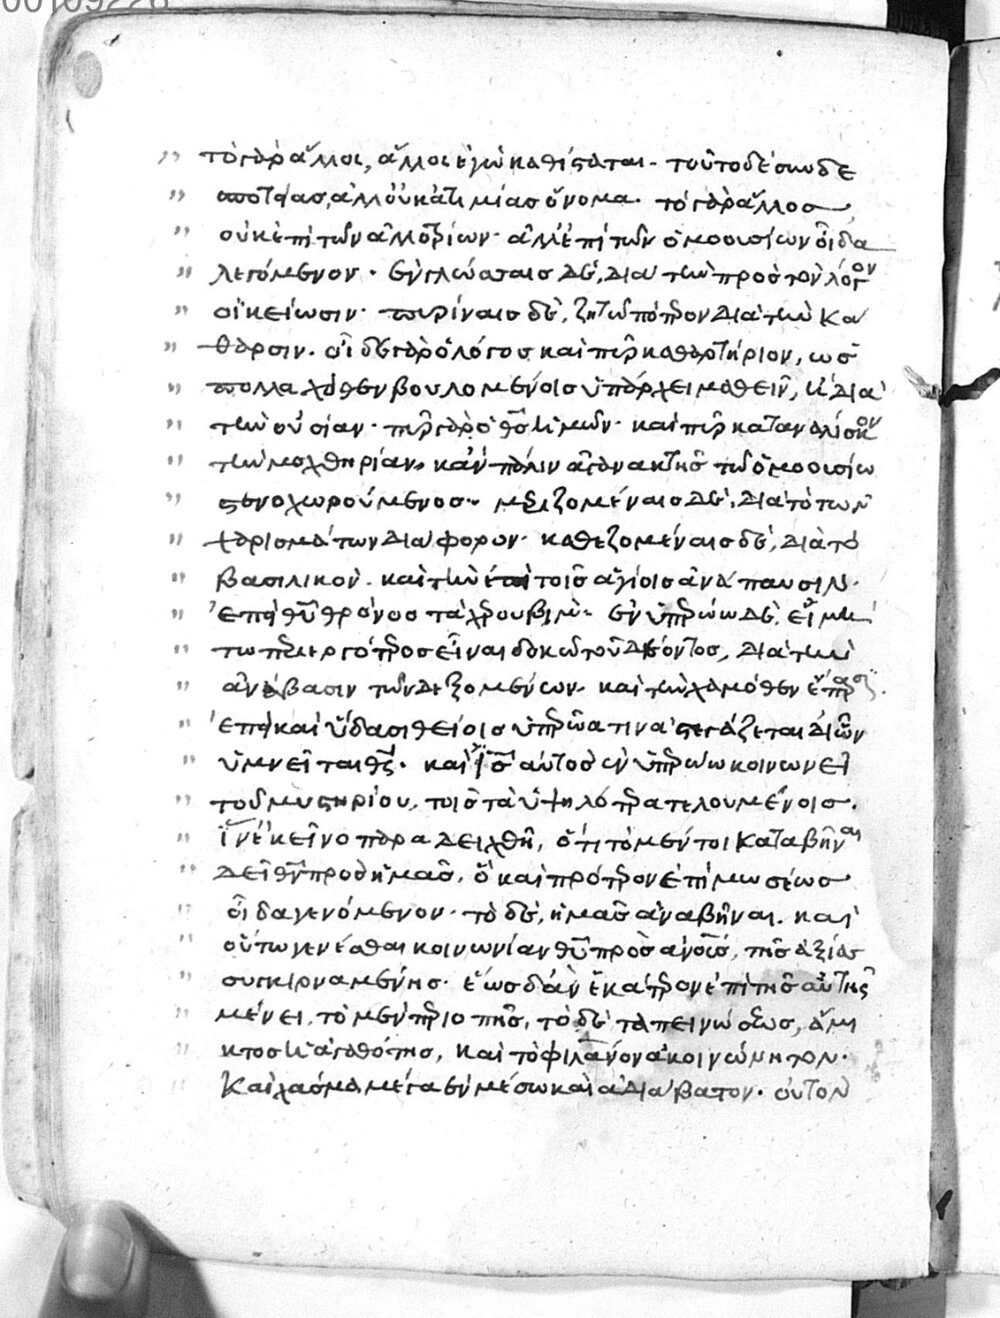 00109226
τὸ γὰρ ἄλλοι, ἄλλοι ἐγὼ καθίσταται. τοῦτο δὲ συνδε
αποστάσ, ἀλλ οὐ κατὰ μίας ὄνομα. τὸ γὰρ ἄλλος
οὐκ ἐπὶ τῶν ἀλλοτρίων. ἀλλ' ἐπὶ τῶν ὁμοουσίων οἶδα
λεγόμενον. ἐν γλώσσαις δὲ, διὰ τὴν πρὸς τὸν λόγον
οἰκείωσιν. πυρίναις δὲ, ζητῶ πότερον διὰ τὴν κα
θαρσιν. οἶδε γὰρ ὁ λόγος καὶ πῦρ καθαρτήριον, ὡς
πολλαχόθεν βουλομένοις ὑπάρχει μαθεῖν, ἢ διὰ
τὴν οὐσίαν. πῦρ γὰρ ὁ θς ἡμῶν. καὶ πῦρ καταναλίσκον
τὴν μοχθηρίαν, κἂν πάλιν ἀγανακτῇς τῷ ὁμοουσίῳ
στενοχωρούμενος. μεριζομέναις δὲ, διὰ τὸ τῶν
χαρισμάτων διάφορον. καθεζομέναις δὲ, διὰ τὸ
βασιλικὸν. καὶ τὴν ἐν τοῖς ἁγίοις ἀνάπαυσιν.
ἐπεὶ θυ θρόνος τὰ χερουβίμ. ἐν ὑπερώῳ δὲ, εἰ μή
τῳ περιεργότερος εἶναι δοκῶ τοῦ δέοντος, διὰ τὴν
ἀνάβασιν τῶν δεξομένων. καὶ τὴν χαμόθεν ἔπαρσιν.
ἐπεὶ καὶ ὕδασι θείοις ὑπερῷά τινα στεγάζεται δι' ὧν
ὑμνεῖται θς. καὶ ις αὐτὸς ἐν ὑπερώῳ κοινωνεῖ
τοῦ μυστηρίου, τοῖς τὰ ὑψηλότερα τελουμένοις.
ἵν' ἐκεῖνο παραδειχθῇ, ὅτι τὸ μέν τοι καταβῆναι
δεῖ θν πρὸς ἡμᾶς, ὃ καὶ πρότερον ἐπὶ μωσέως
οἶδα γενόμενον. τὸ δὲ, ἡμᾶς ἀναβῆναι. καὶ
οὕτω γενέσθαι κοινωνίαν θυ πρὸς ανους, τῆς ἀξίας
συγκιρναμένης. ἕως δ' ἂν ἑκάτερον ἐπὶ τῆς αὐτῆς
μένει, τὸ μὲν περιωπῆς, τὸ δὲ ταπεινώσεως, ἄμι
κτος ἡ ἀγαθότης, καὶ τὸ φιλανον ἀκοινώνητον.
καὶ χάσμα μέγα ἐν μέσῳ καὶ ἀδιάβατον. οὐ τὸν